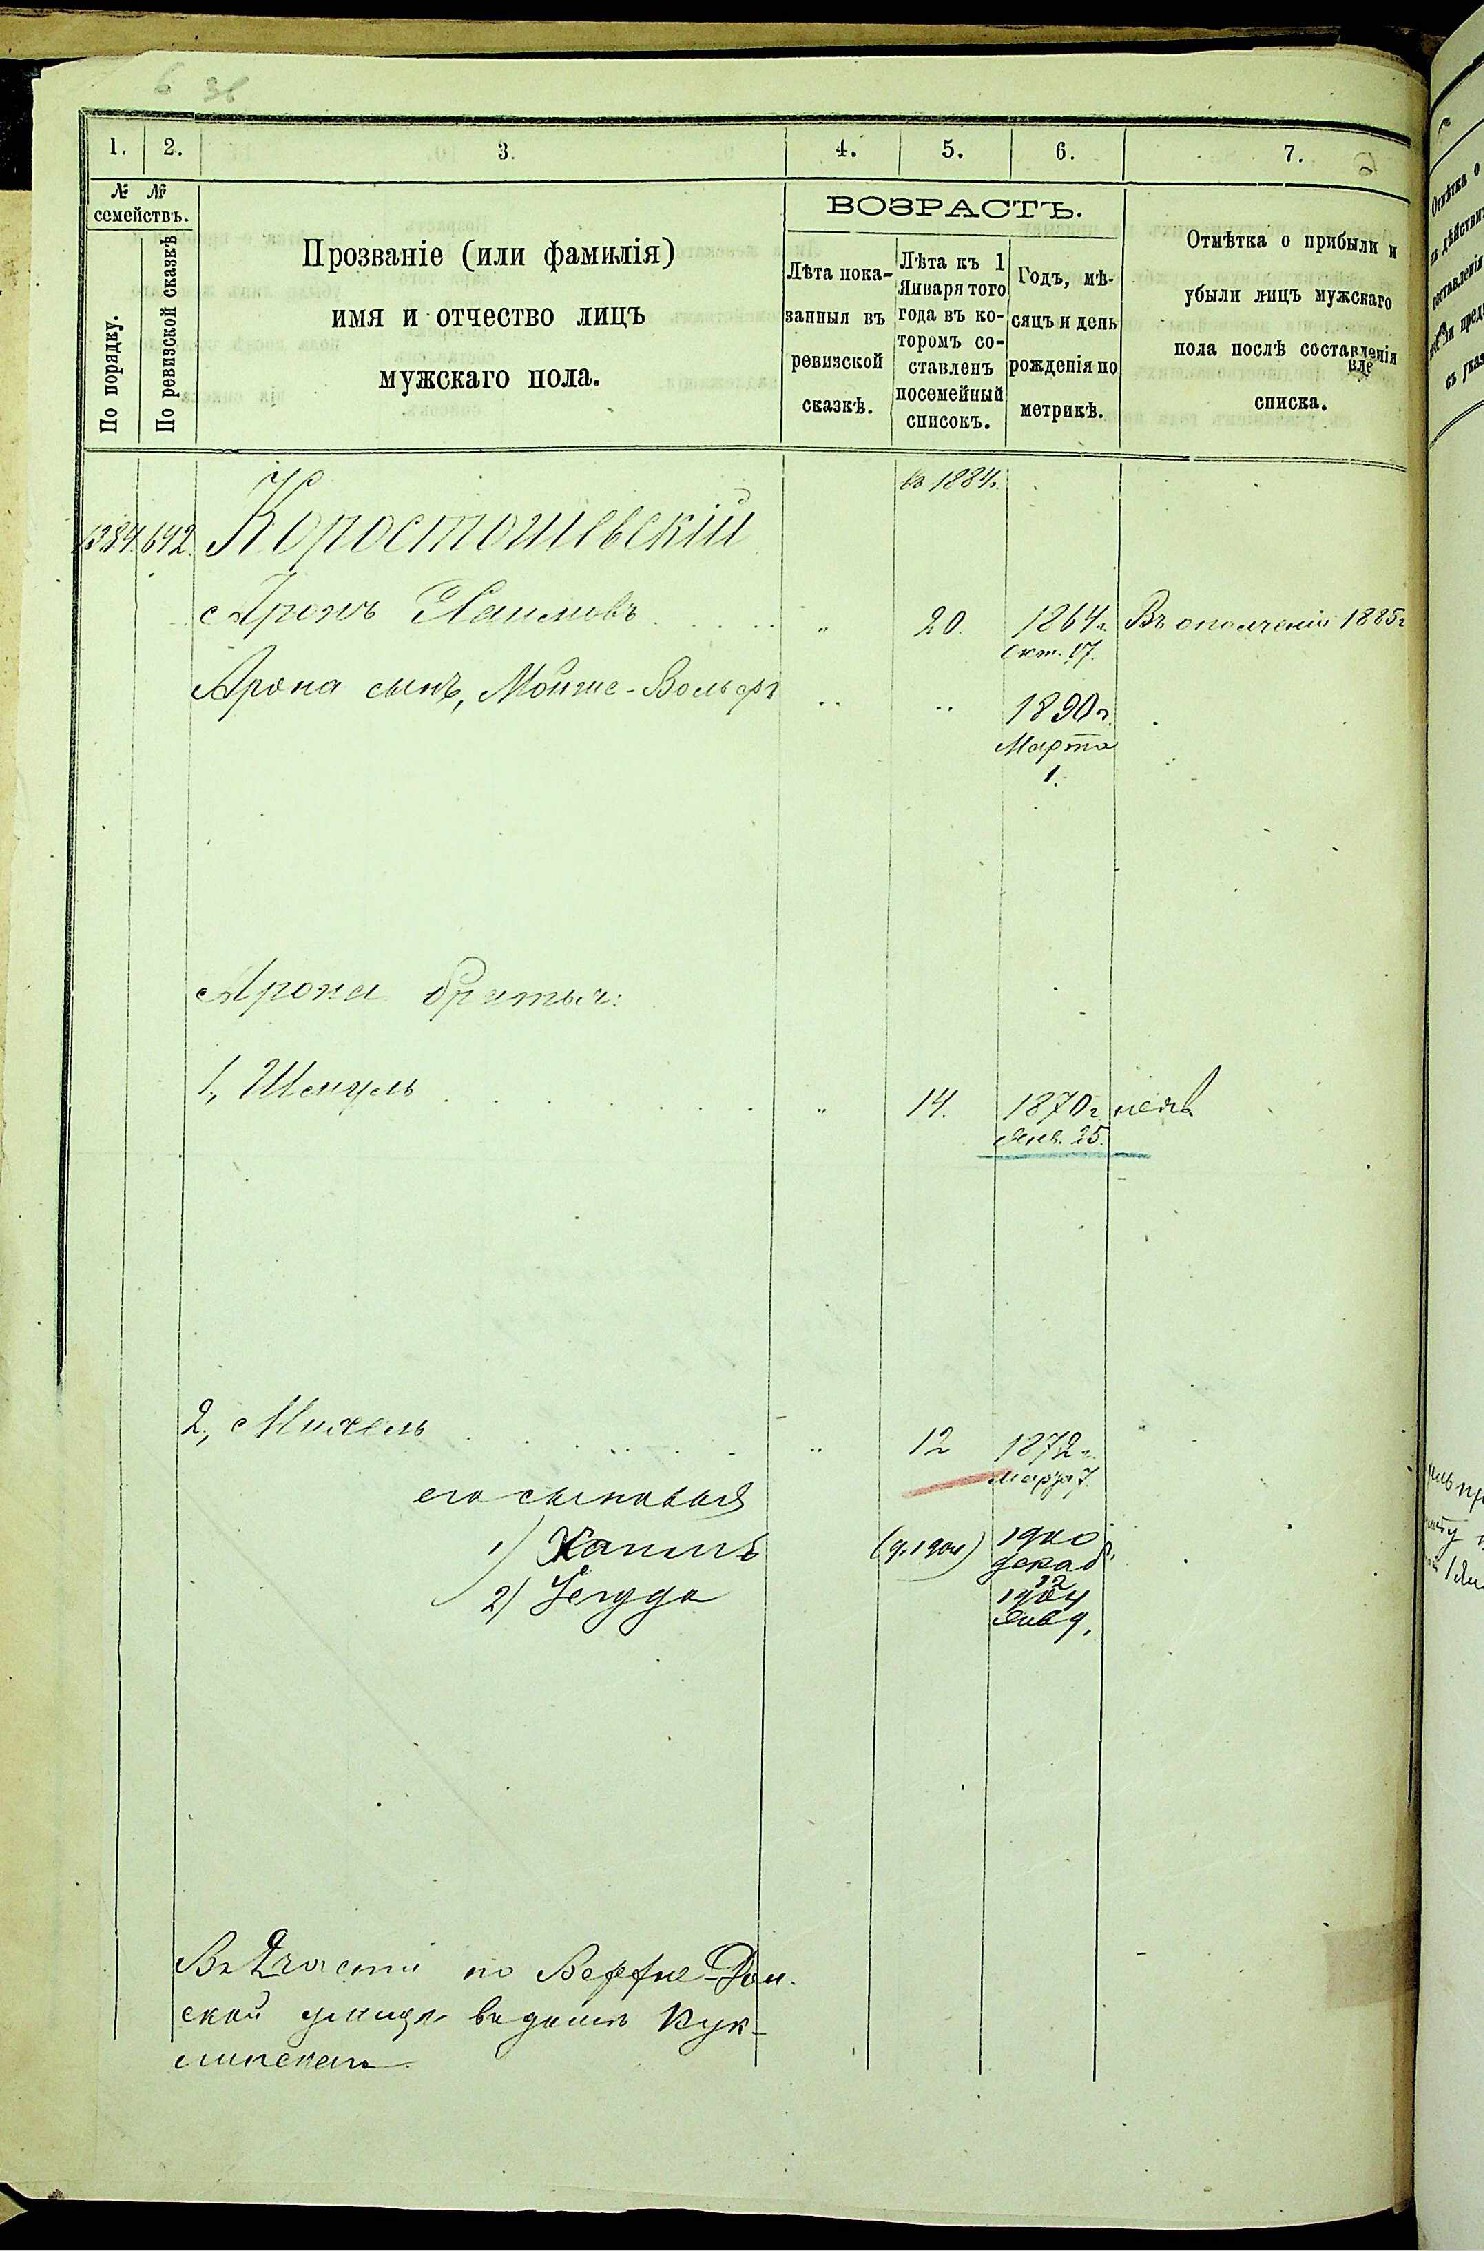 6 36
1. 2. 3. 4. 5. 6. 7. 6
№ № семействъ.
По порядку.
По ревизской сказкѣ
Прозваніе (или фамилія)
имя и отчество лицъ
мужскаго пола.
ВОЗРАСТЪ.
Лѣта пока-
занныя въ
ревизской
сказкѣ.
Лѣта къ 1
Января того
года въ ко-
торомъ со-
ставленъ
посемейный
списокъ.
Годъ, мѣ-
сяцъ и день
рожденія по
метрикѣ.
Отмѣтка о прибыли и
убыли лицъ мужскаго
пола послѣ составленія
списка.
къ 1884г.
1384 642 Коростошевскій
Аронъ Хаимовъ " 20. 1864г. Въ ополченіи 1885г
Окт. 17.
Арона сынъ, Мойше-Вольфъ " " 1890г.
Марта
1.
Арона братья:
1, Шмуль " 14. 1870г
Янв. 25.
2, Михель " 12 1872г.
Марта 7.
его сыновья
1) Хаимъ 1900
декаб.
12
2) Іегуда 1904
Янв 9.
Въ 2 части по Верхне-Дон-
ской улице въ домѣ Кук-